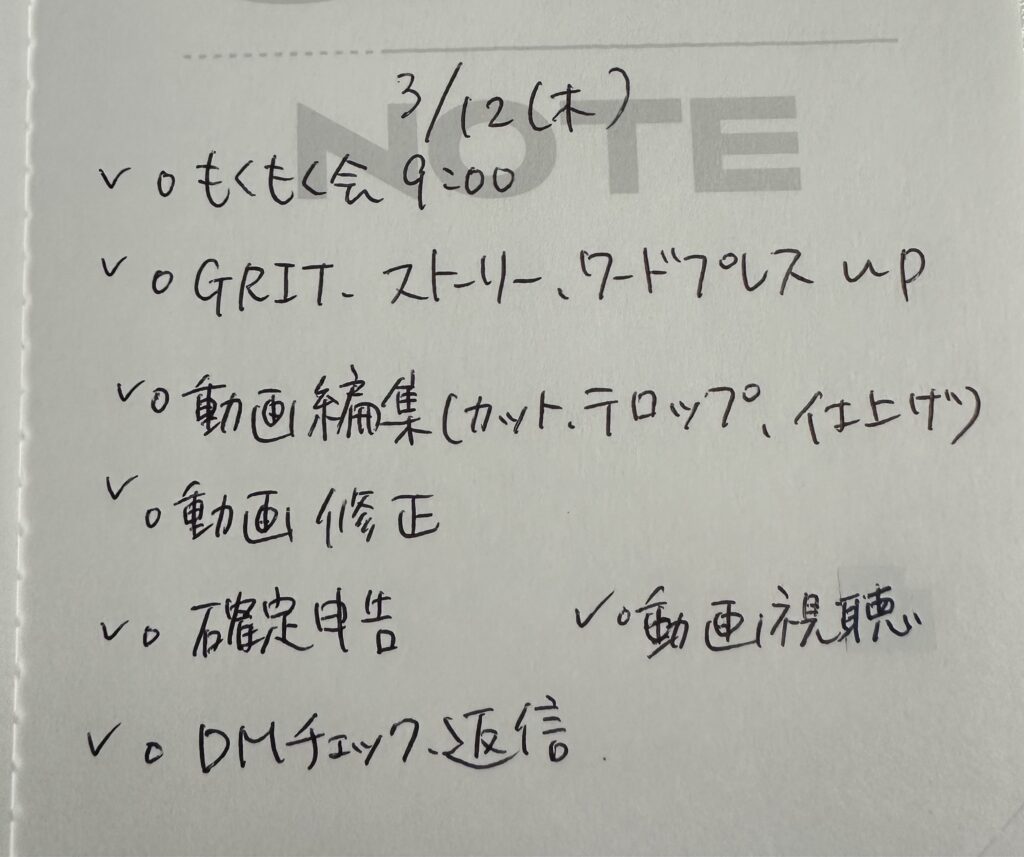 NOTE
3/12(木)
✓ ○ もくもく会 9:00
✓ ○ GRIT、ストーリー、ワードプレス up
✓ ○ 動画編集(カット、テロップ、仕上げ)
✓ ○ 動画修正
✓ ○ 確定申告 ✓ ○ 動画視聴
✓ ○ DMチェック、返信